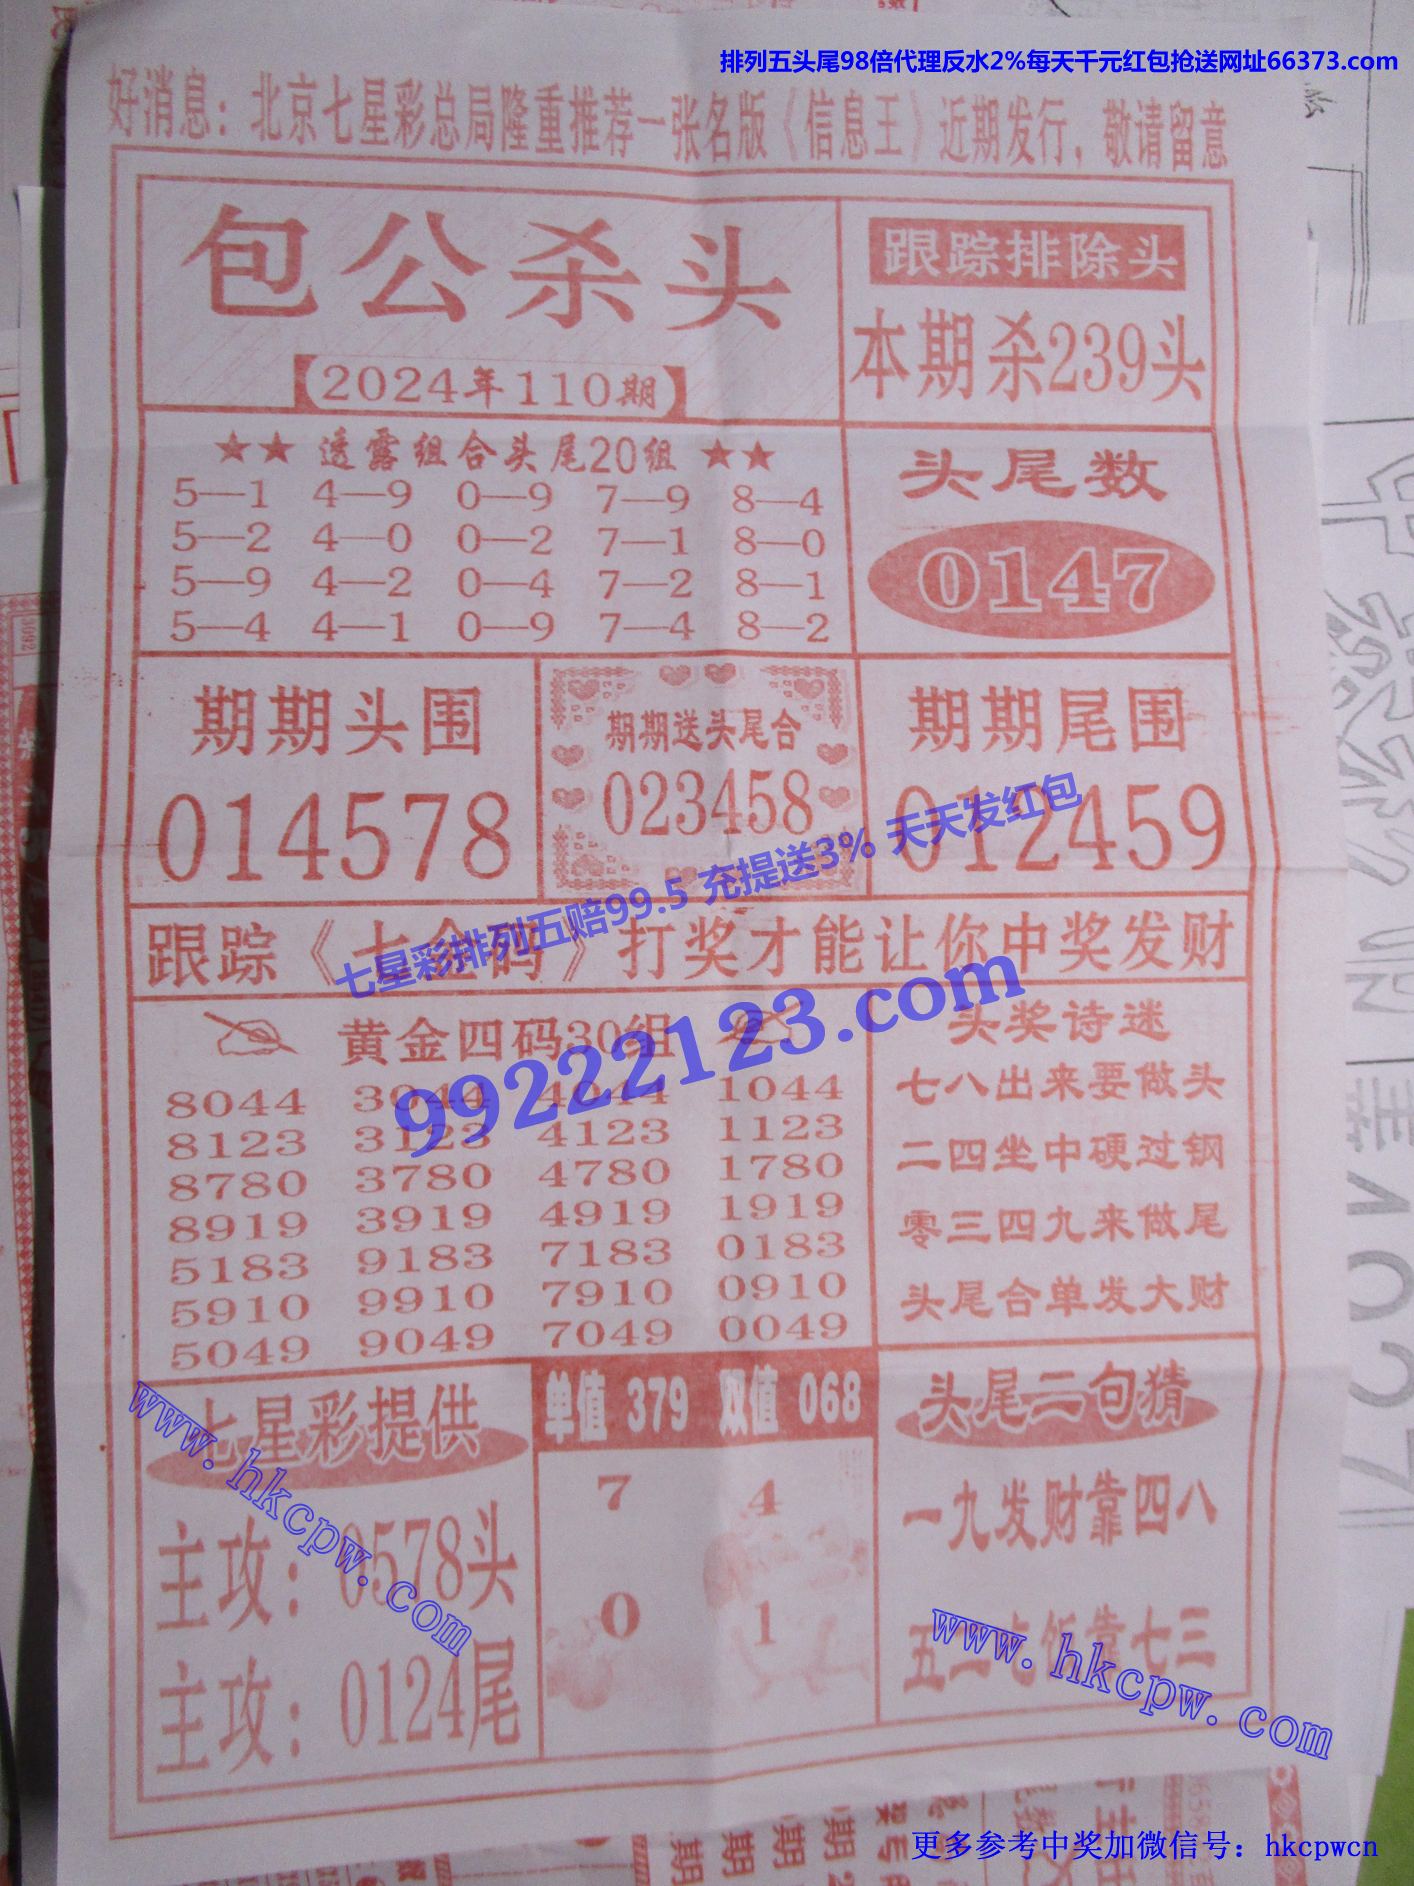 排列五头尾98倍代理反水2%每天千元红包抢送网址66373.com
好消息：北京七星彩总局隆重推荐一张名版《信息王》近期发行，敬请留意
包公杀头
【2024年110期】
跟踪排除头
本期杀239头
★★ 透露组合头尾20组 ★★
5—1 4—9 0—9 7—9 8—4
5—2 4—0 0—2 7—1 8—0
5—9 4—2 0—4 7—2 8—1
5—4 4—1 0—9 7—4 8—2
头尾数
0147
期期头围
014578
期期送头尾合
023458
期期尾围
012459
七星彩排列五赔99.5 充提送3% 天天发红包
跟踪《七金码》打奖才能让你中奖发财
99222123.com
黄金四码30组
8044 3044 4044 1044
8123 3123 4123 1123
8780 3780 4780 1780
8919 3919 4919 1919
5183 9183 7183 0183
5910 9910 7910 0910
5049 9049 7049 0049
头奖诗迷
七八出来要做头
二四坐中硬过钢
零三四九来做尾
头尾合单发大财
七星彩提供
主攻：0578头
主攻：0124尾
www.hkcpw.com
单值 379 双值 068
7 4
0 1
头尾二句猜
一九发财靠四八
五二吃饭靠七三
www.hkcpw.com
更多参考中奖加微信号：hkcpwcn